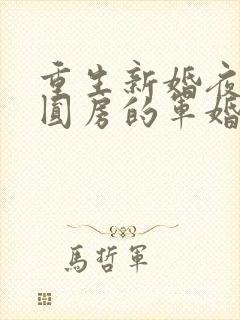 重生新婚夜
圆房的军婚
馬哲軍